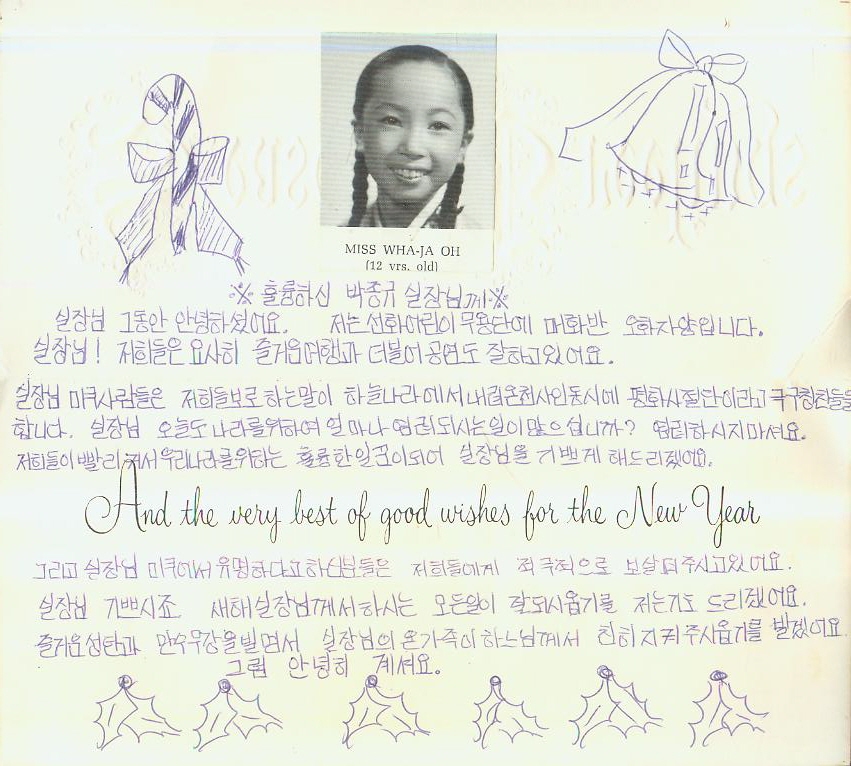 MISS WHA-JA OH
(12 yrs. old)
※ 훌륭하신 박종규 실장님께 ※
실장님 그동안 안녕하셨어요. 저는 선화어린이 무용단에 매화반 오화자양입니다.
실장님! 저희들은 요사히 즐거운여행과 더불어 공연도 잘하고있어요.
실장님 미국사람들은 저희들보로 하는말이 하늘나라에서 내려온천사인동시에 평화사절단이라고 극구칭찬들을
합니다. 실장님 오늘도 나라를위하여 얼마나 염려되시는일이 많으십니까? 염려하시지마셔요.
저희들이 빨리 커서 우리나라를위하는 훌륭한일꾼이되어 실장님을 기쁘게 해드리겠어요.
And the very best of good wishes for the New Year
그리고 실장님 미국에서 유명하다고하신분들은 저희들에게 적극적으로 보살펴주시고있어요.
실장님 기쁘시죠 새해실장님께서하시는 모든일이 잘되시옵기를 저는기도 드리겠어요.
즐거운성탄과 만수무강을빌면서 실장님의 온가족이하느님께서 친히지켜주시옵기를 빌겠어요
그럼 안녕히 계셔요.